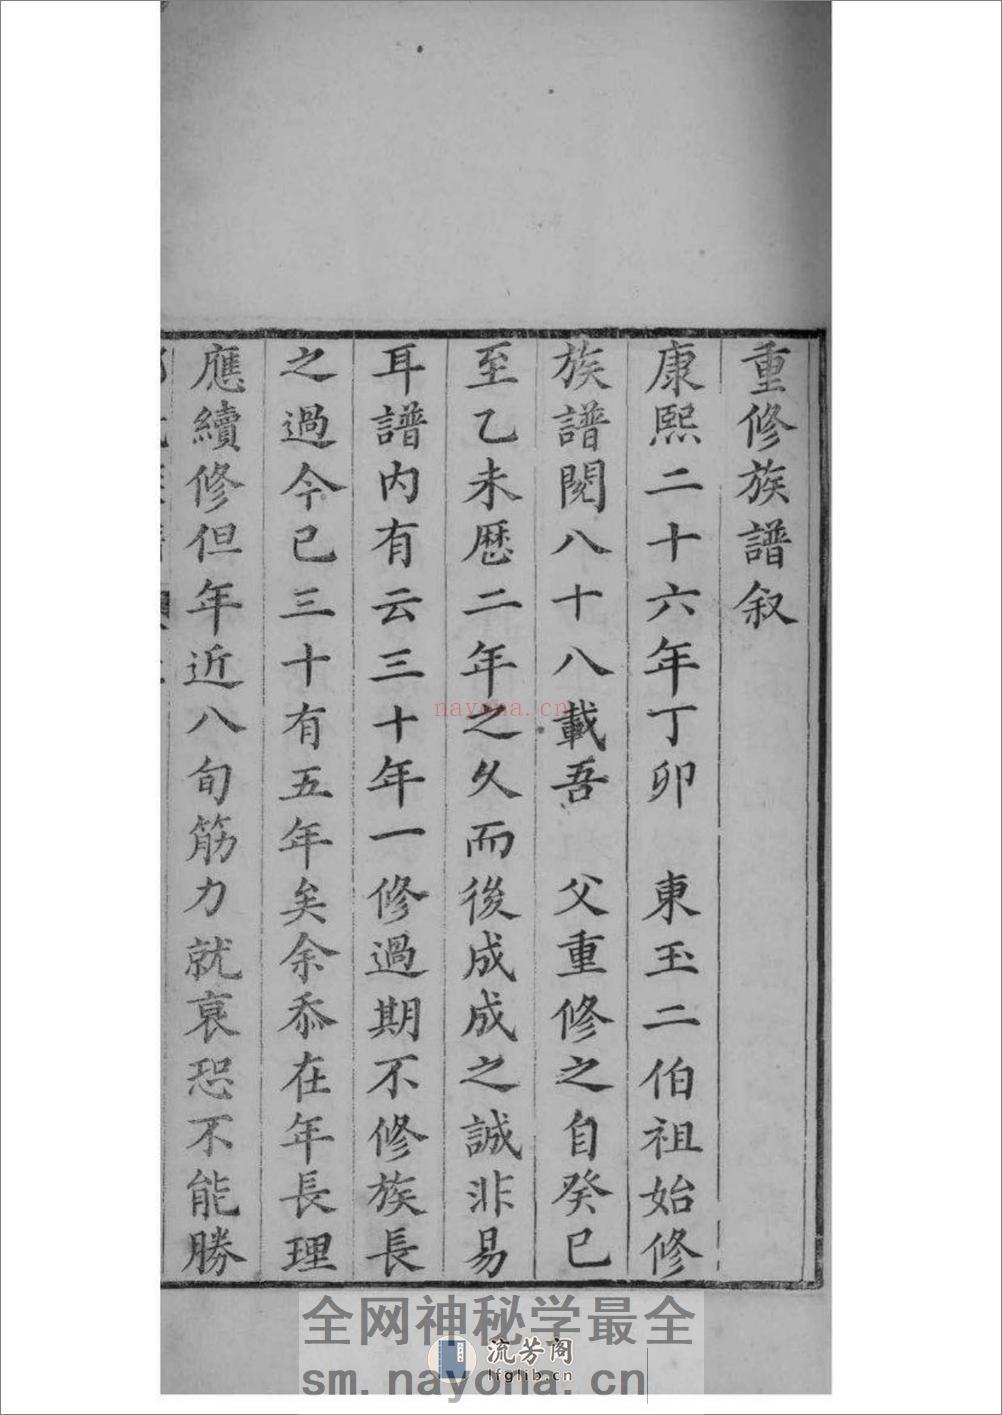 重修族譜叙
康熙二十六年丁卯　東玉二伯祖始修
族譜閱八十八載吾　父重修之自癸巳
至乙未歷二年之久而後成成之誠非易
耳譜内有云三十年一修過期不修族長
之過今已三十有五年矣余忝在年長理
應續修但年近八旬筋力就衰恐不能勝
nayona.cn
全网神秘学最全
流芳阁
lfglib.cn
sm.nayona.cn